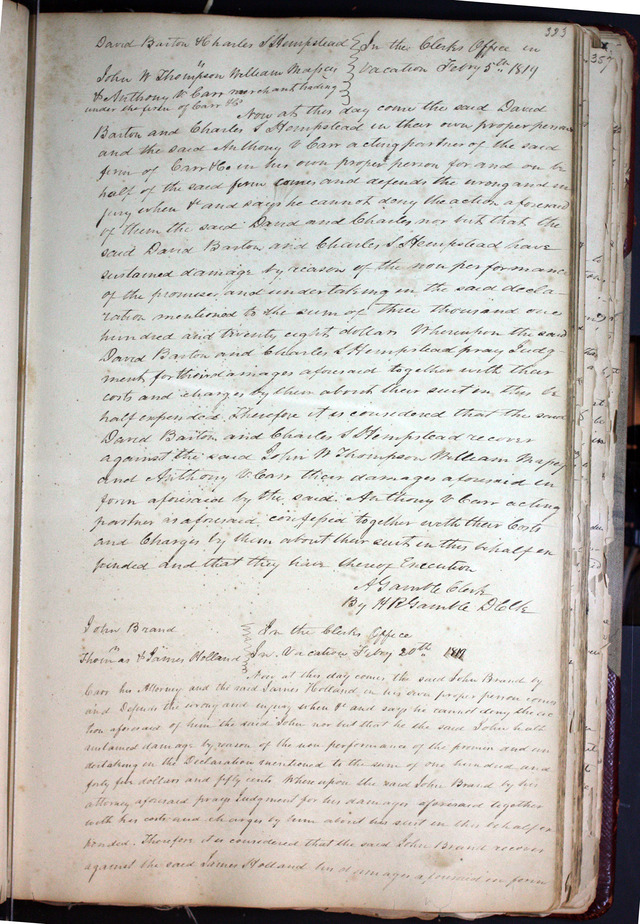 323
David Barton & Charles S Hempstead } In the Clerks Office in
John W Thompson William Massey } Vacation Febry 5th 1819
& Anthony V Carr merchants trading
under the firm of Carr & Co
Now at this day come the said David
Barton and Charles S Hempstead in their own proper person
and the said Anthony V Carr acting partner of the said
firm of Carr & Co in his own proper person for and on be
half of the said firm comes and defends the wrong and in
jury when &c and says he cannot deny the action aforesaid
of them the said David and Charles nor but that the
said David Barton and Charles S Hempstead have
sustained damage by reason of the non performance
of the promises and undertaking in the said decla-
ration mentioned to the sum of three thousand one
hundred and twenty eight dollars Whereupon the said
David Barton and Charles S Hempstead pray Judg
ment for their damages aforesaid together with their
costs and charges by them about their suit in this be
half expended. Therefore it is considered that the said
David Barton and Charles S Hempstead recover
against the said John W Thompson William Massey
and Anthony V Carr their damages aforesaid in
form aforesaid by the said Anthony V Carr acting
partner as aforesaid confessed together with their Costs
and Charges by them about their suit in this behalf ex
pended and that they have thereof Execution
A Gamble Clerk
By H R Gamble D Clk
John Brand } In the Clerks Office
Thomas & James Holland } In Vacation Febry 20th 1819
Now at this day comes the said John Brand by
Carr his Attorney and the said James Holland in his own proper person comes
and Defends the wrong and injury when &c and says he cannot deny the ac
tion aforesaid of him the said John nor but that he the said John hath
sustained damage by reason of the non performance of the promises and un
dertaking in the Declaration mentioned to the sum of one hundred and
forty five dollars and fifty cents Whereupon the said John Brand by his
attorney aforesaid prays Judgment for his damages aforesaid together
with his costs and charges by him about his suit in this behalf ex
pended. Therefore it is considered that the said John Brand recover
against the said James Holland his damages aforesaid in form
357